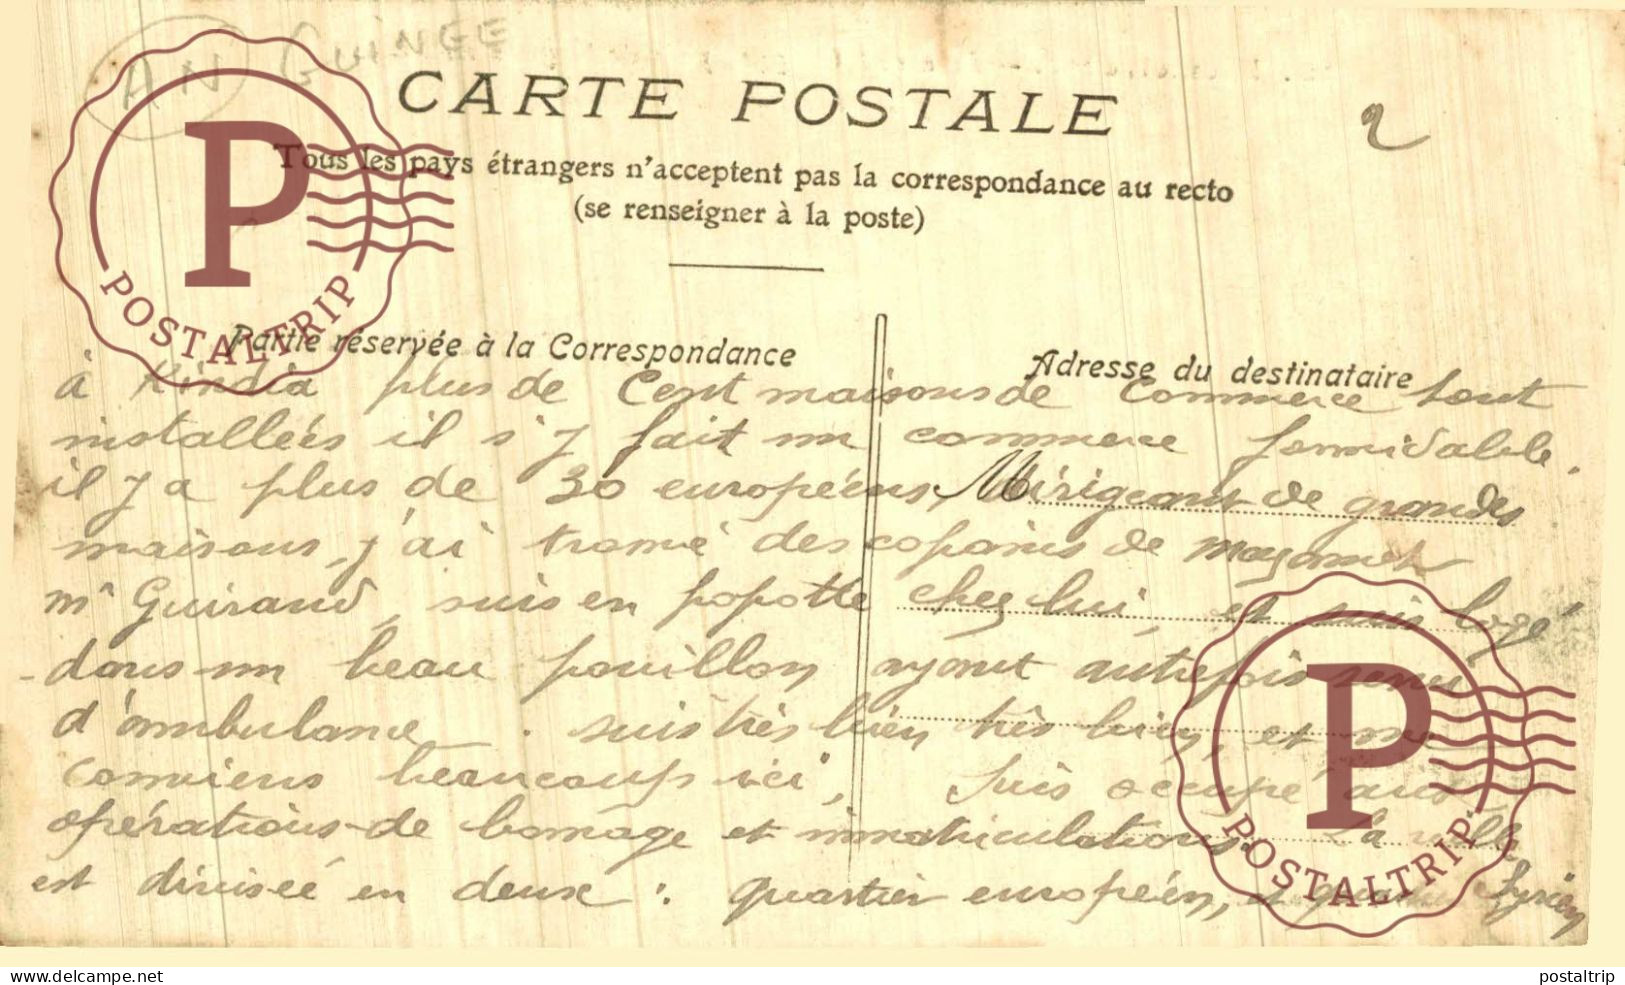 AN GUINÉE
CARTE POSTALE
2
Tous les pays étrangers n'acceptent pas la correspondance au recto
(se renseigner à la poste)
Partie réservée à la Correspondance
Adresse du destinataire
à Kindia plus de Cent maisons de Commerce sont
installées il s'y fait un commerce formidable.
il y a plus de 30 européens, dirigeant de grandes
maisons, j'ai trouvé des copains de
Mr Guiraud, suis en popotte chez lui, et suis logé
dans un beau pavillon ayant autrefois servi
d'ambulance. suis très bien très bien, et me
conviens beaucoup ici, Suis occupé aux
opérations de bornage et immatriculations. La ville
est divisée en deux : quartier européen, et quartier Syrien
P
POSTALTRIP
P
POSTALTRIP
www.delcampe.net
postaltrip